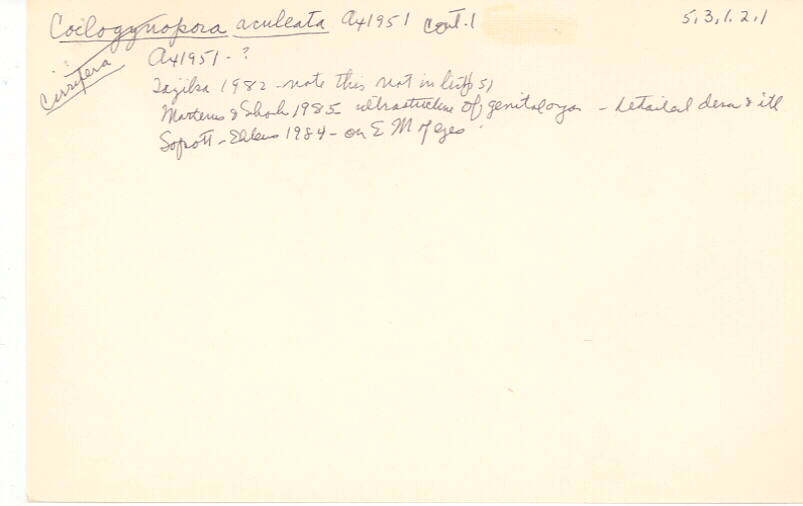 Coilogynopora aculeata Ax 1951 cont. 1 5.3.1.2.1
Cirrifera
Ax 1951 - ?
1982 - note this not in list 51
Martens & 1985 ultrastructure of genital organ - detailed
Sopott-Ehlers 1984 - on E M of eyes